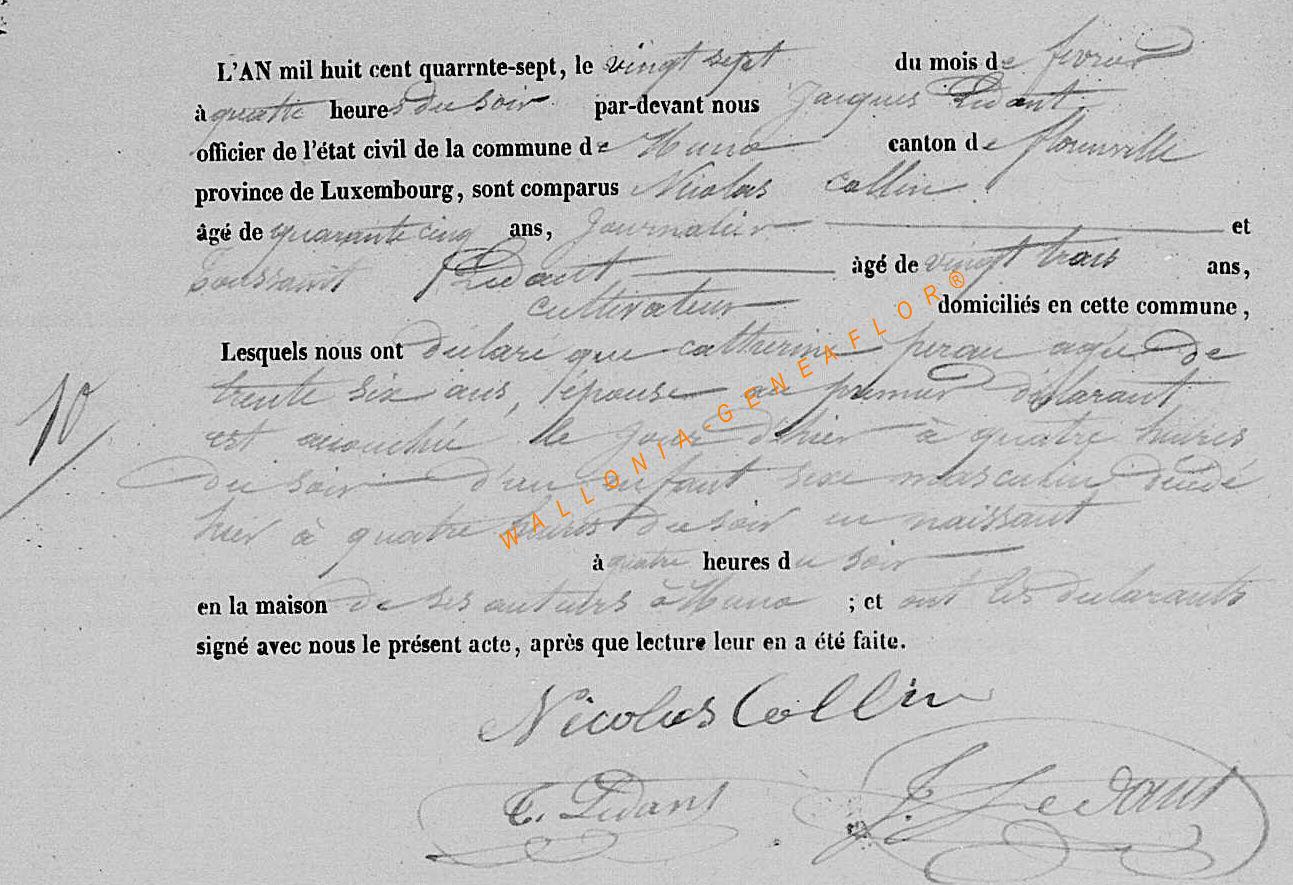 L'AN mil huit cent quarrnte-sept, le vingt sept du mois de fevrier
à quatre heures du soir par-devant nous Jacques Lédant
officier de l'état civil de la commune de Muno canton de florenville
province de Luxembourg, sont comparus Nicolas Collin
âgé de quarante cinq ans, Journalier et
toussaint Lédant àgé de vingt trois ans,
cultivateur domiciliés en cette commune,
Lesquels nous ont déclaré que catherine perau agée de
trente six ans, l'épouse au premier déclarant
est accouchée le jour d'hier à quatre heures
du soir d'un enfant sexe masculin décédé
hier à quatre heures du soir en naissant
à quatre heures du soir
en la maison de ses auteurs à Muno ; et ont les déclarants
signé avec nous le présent acte, après que lecture leur en a été faite.
Nicolas Collin
T. Lédant J. Ledant
WALLONIA-GENEAFLOR®